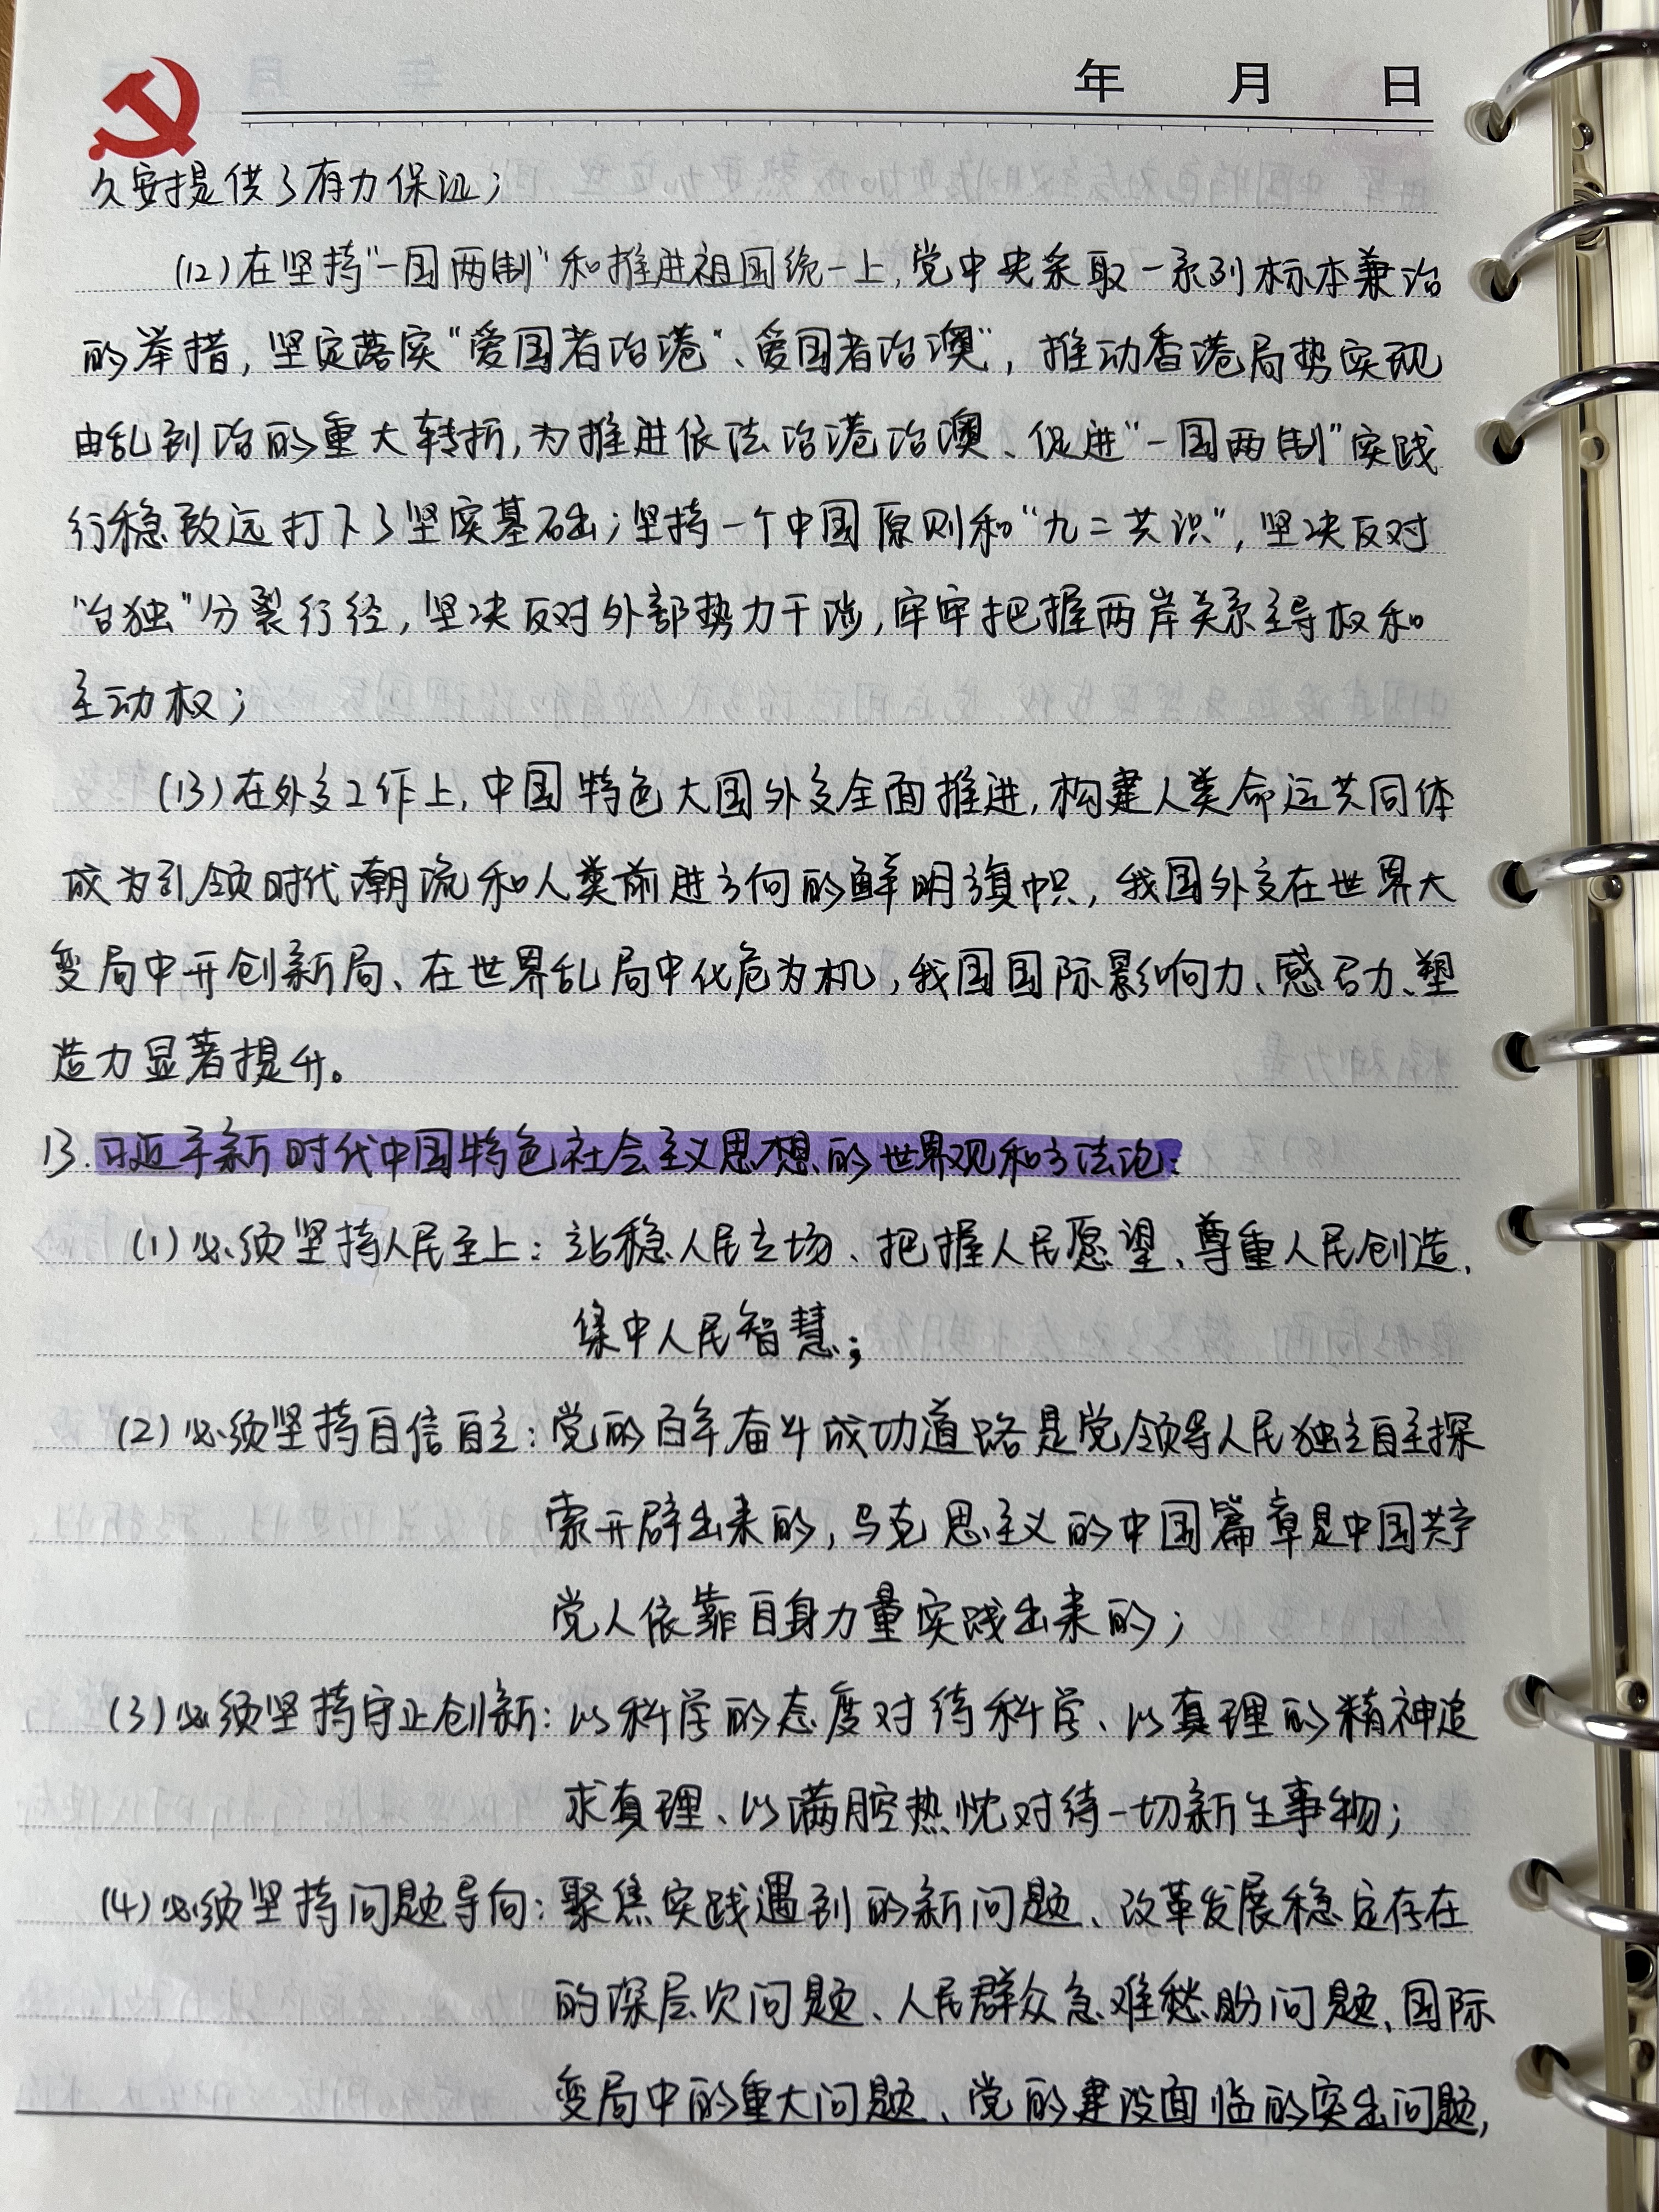 年 月 日
久安提供了有力保证；
(12)在坚持“一国两制”和推进祖国统一上，党中央采取一系列标本兼治
的举措，坚定落实“爱国者治港”、“爱国者治澳”，推动香港局势实现
由乱到治的重大转折，为推进依法治港治澳、促进“一国两制”实践
行稳致远打下了坚实基础；坚持一个中国原则和“九二共识”，坚决反对
“台独”分裂行径，坚决反对外部势力干涉，牢牢把握两岸关系主导权和
主动权；
(13)在外交工作上，中国特色大国外交全面推进，构建人类命运共同体
成为引领时代潮流和人类前进方向的鲜明旗帜，我国外交在世界大
变局中开创新局、在世界乱局中化危为机，我国国际影响力、感召力、塑
造力显著提升。
13.习近平新时代中国特色社会主义思想的世界观和方法论：
(1)必须坚持人民至上：站稳人民立场、把握人民愿望、尊重人民创造、
集中人民智慧；
(2)必须坚持自信自主：党的百年奋斗成功道路是党领导人民独立自主探
索开辟出来的，马克思主义的中国篇章是中国共产
党人依靠自身力量实践出来的；
(3)必须坚持守正创新：以科学的态度对待科学、以真理的精神追
求真理、以满腔热忱对待一切新生事物；
(4)必须坚持问题导向：聚焦实践遇到的新问题、改革发展稳定存在
的深层次问题、人民群众急难愁盼问题、国际
变局中的重大问题、党的建设面临的突出问题，